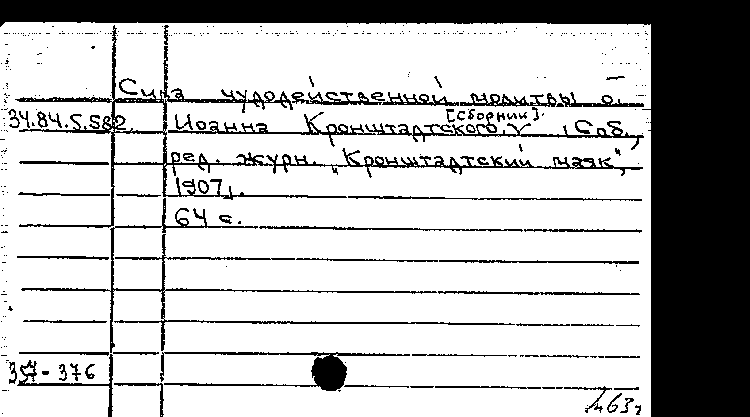 Сила чудодейственной молитвы о.
34.84.5.582. Иоанна Кронштадтского. [Сборник]. Спб.,
ред. журн. "Кронштадтский маяк",
1907.
64 с.
357-376